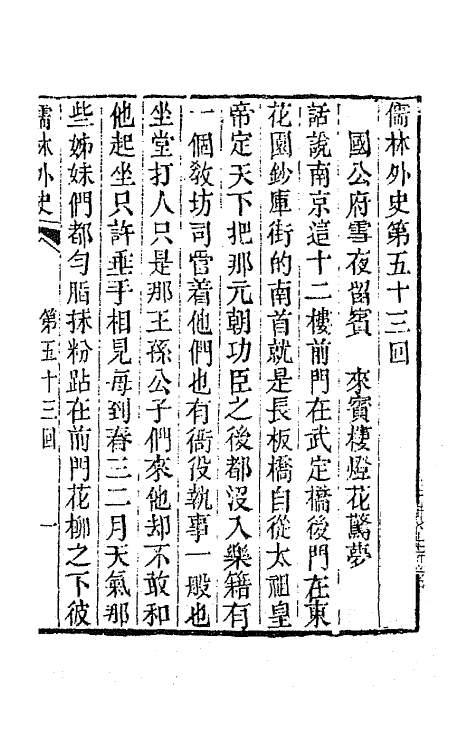 儒林外史第五十三回
國公府雪夜留賓　來賓樓燈花驚夢
話說南京這十二樓前門在武定橋後門在東
花園鈔庫街的南首就是長板橋自從太祖皇
帝定天下把那元朝功臣之後都沒入樂籍有
一個教坊司管着他們也有衙役執事一般也
坐堂打人只是那王孫公子們來他却不敢和
他起坐只許垂手相見每到春三二月天氣那
些姊妹們都勻脂抹粉跕在前門花柳之下彼
儒林外史　第五十三回　一